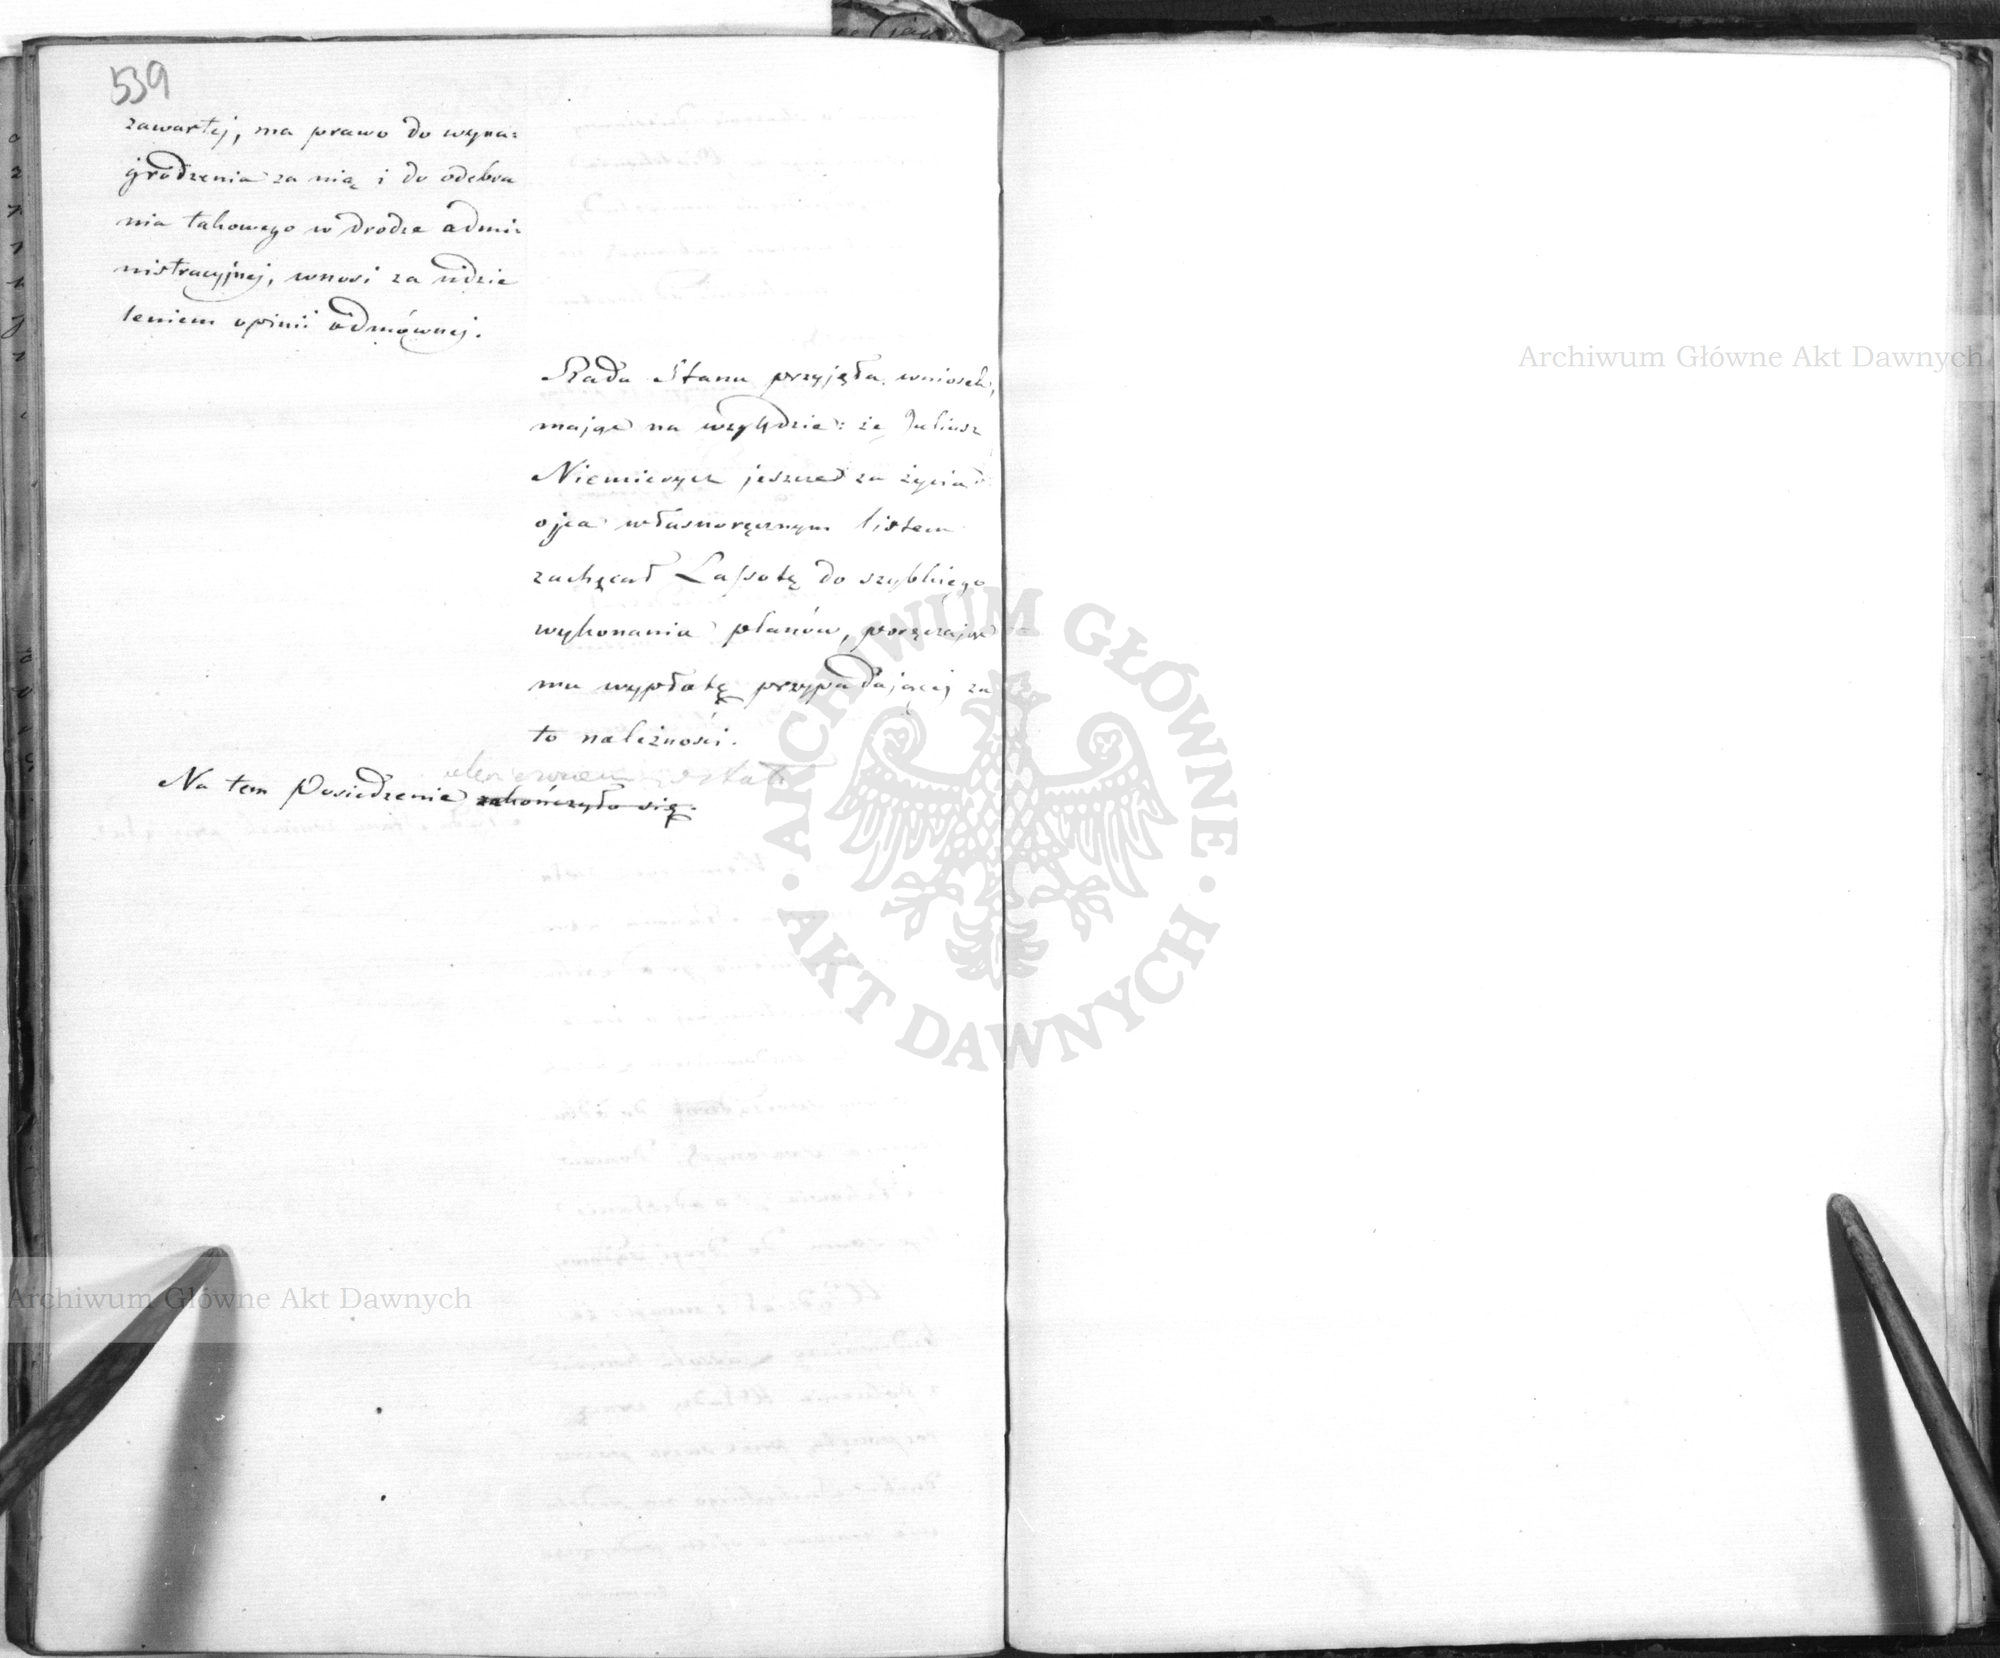 539
zawartej, ma prawo do wyna=
grodzenia za nią i do odebra
nia takowego w drodze admi=
nistracyjnej, wnosi za udzie
leniem opinii odmównej.
Rada Stanu przyjęła wniosek,
mając na względzie: że Juliusz
Niemierycz jeszcze za życia
ojca własnoręcznym listem
zachęcał Lassotę do szybkiego
wykonania planów, poręczając
mu wypłatę przypadającej za
to należności.
Na tem Posiedzenie zakończyło się.
Archiwum Główne Akt Dawnych
Archiwum Główne Akt Dawnych
ARCHIWUM GŁÓWNE
AKT DAWNYCH